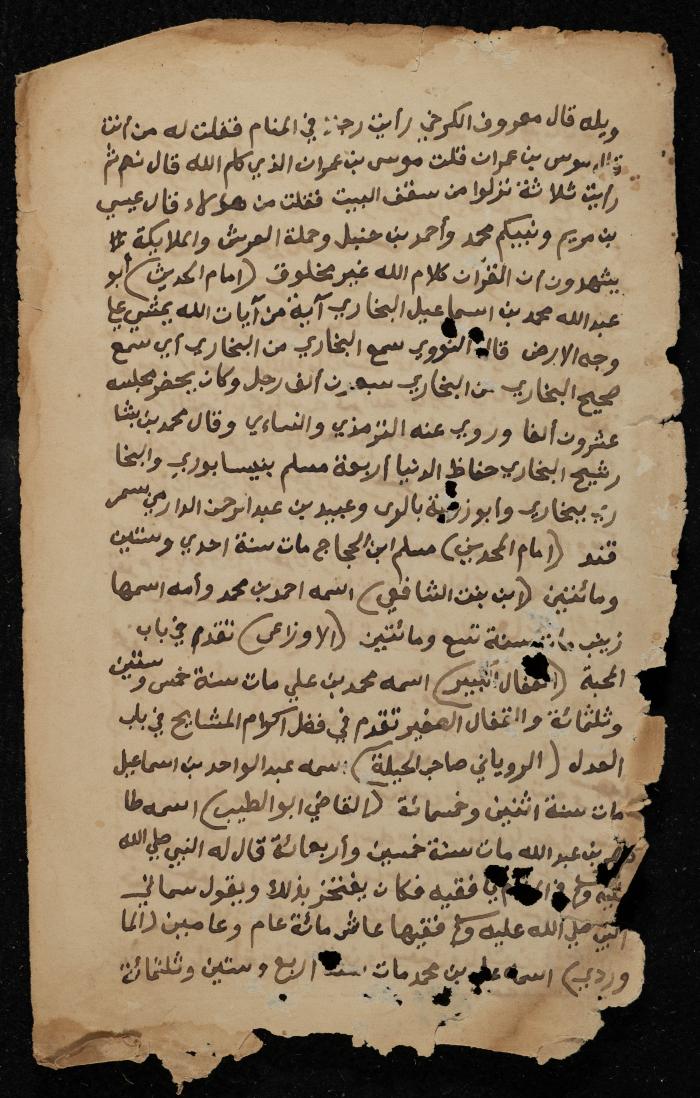 ويله قال معروف الكرخي رأيت رجلا في المنام فقلت له من أنت
قال موسى بن عمران قلت موسى بن عمران الذي كلم الله قال نعم ثم
رأيت ثلاثة نزلوا من سقف البيت فقلت من هؤلاء قال عيسى
بن مريم ونبيكم محمد وأحمد بن حنبل وحملة العرش والملايكة
يشهدون أن القرآن كلام الله غير مخلوق (امام الحديث) أبو
عبد الله محمد بن اسماعيل البخاري آية من آيات الله يمشي على
وجه الارض قال النووي سمع البخاري من البخاري أي سمع
صحيح البخاري من البخاري سبعون ألف رجل وكان يحضر مجلسه
عشرون ألفا وروي عنه الترمذي والنساءي وقال محمد بن بشا
ر شيخ البخاري حفاظ الدنيا أربعة مسلم بنيسابوري والبخا
ري ببخاري وابو زرعة بالري وعبيد بن عبد الرحمن الدارمي بسمر
قند (امام المحدثين) مسلم ابن الحجاج مات سنة احدي وستين
ومائتين (ابن بنت الشافعي) اسمه احمد بن محمد وأمه اسمها
زينب مات سنة تسع ومائتين (الاوزاعي) تقدم في باب
المحبة (القفال الكبير) اسمه محمد بن علي مات سنة خمس وستين
وثلثمائة والقفال الصغير تقدم في فضل اكرام المشايخ في باب
العدل (الروياني صاحب الحيلة) اسمه عبد الواحد بن اسماعيل
مات سنة اثنين وخمسمائة (القاضي ابو الطيب) اسمه طا
هر بن عبد الله مات سنة خمسين وأربعمائة قال له النبي صلي الله
عليه و في المنام يا فقيه فكان يفتخر بذلك ويقول سماني
النبي صلي الله عليه و فقيها عاش مائة عام وعامين (الما
وردي) اسمه علي بن محمد مات سنة اربع وستين وثلثمائة